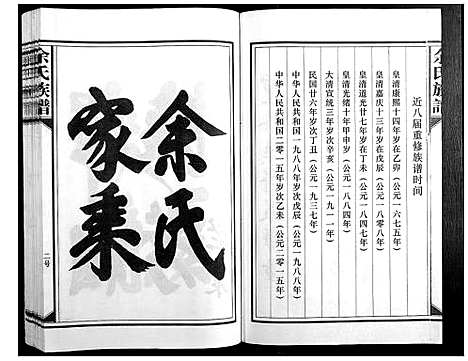 余氏族譜
近八届重修族谱时间
皇清康熙十四年岁在乙卯（公元一六七五年）
皇清嘉庆十三年岁在戊辰（公元一八〇八年）
皇清道光廿七年岁在丁未（公元一八四七年）
皇清光绪十年甲申岁（公元一八八四年）
大清宣统三年岁次辛亥（公元一九一一年）
民国廿六年岁次丁丑（公元一九三七年）
中华人民共和国一九八八年岁次戊辰（公元一九八八年）
中华人民共和国二零一五年岁次乙未（公元二零一五年）
余氏
家乘
余氏族譜
二号